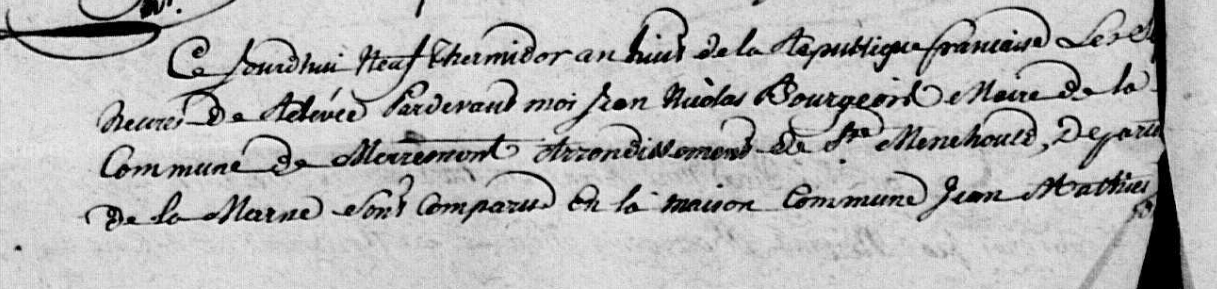 Ce jourdhui Neuf thermidor an huit de la Republique francaise Les
heures de Relévée Pardevant moi Jean Nicolas Bourgeois Maire de la
Commune de Moiremont Arrondissement de Ste Menehould, Départe
de la Marne sont comparu en la maison commune Jean Mathieu